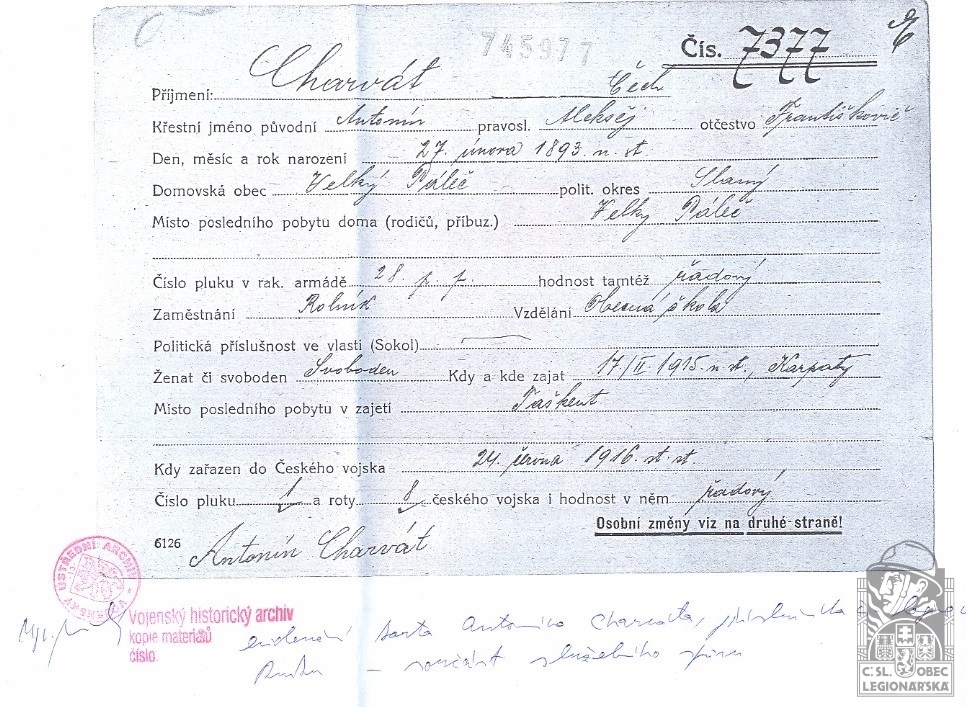 745977
Čís. 7377
Příjmení: Charvát Čech
Křestní jméno původní Antonín pravosl. Aleksěj otčestvo Františkovič
Den, měsíc a rok narození 27. února 1893 n. st.
Domovská obec Velký Páleč polit. okres Slaný
Místo posledního pobytu doma (rodičů, příbuz.) Velky Páleč
Číslo pluku v rak. armádě 28 p. p. hodnost tamtéž řadový
Zaměstnání Rolník Vzdělání Obecná škola
Politická příslušnost ve vlasti (Sokol)
Ženat či svoboden Svoboden Kdy a kde zajat 17/II 1915 n. st., Karpaty
Místo posledního pobytu v zajetí Taškent
Kdy zařazen do Českého vojska 24. června 1916 st. st.
Číslo pluku 1 a roty 8 českého vojska i hodnost v něm řadový
Osobní změny viz na druhé straně!
6126 Antonín Charvát
ÚSTŘEDNÍ ARCHIV
Vojenský historický archiv
kopie materiálů
číslo
karta Antonína Charváta, příslušníka
Rusku – součást služebního spisu
ČSL. OBEC
LEGIONÁŘSKÁ